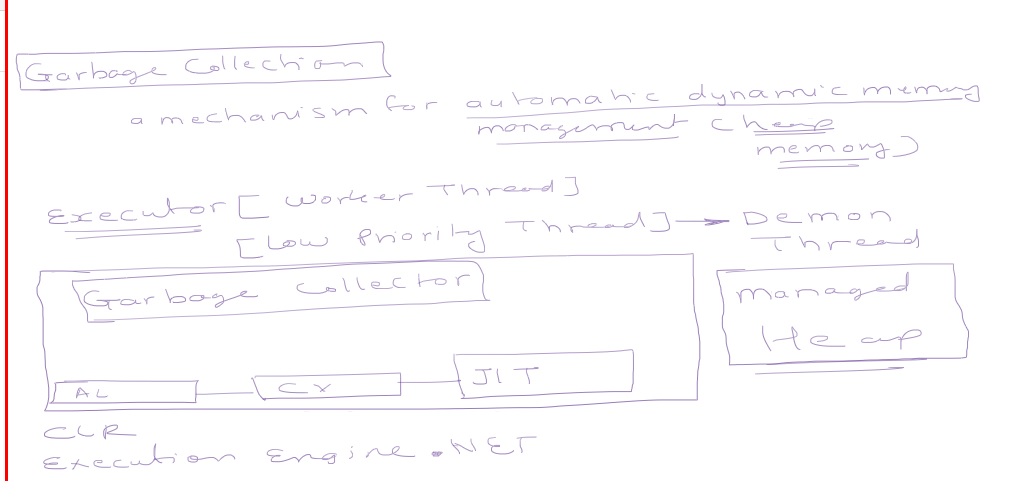 Garbage Collection
a mechanism for automatic dynamic memory
management (heap
memory)
Executor [ Worker Thread]
[Low Priority Thread] → Demon
Thread
Garbage Collector
Managed
Heap
AL
CX
JIT
CLR
Execution Engine .NET